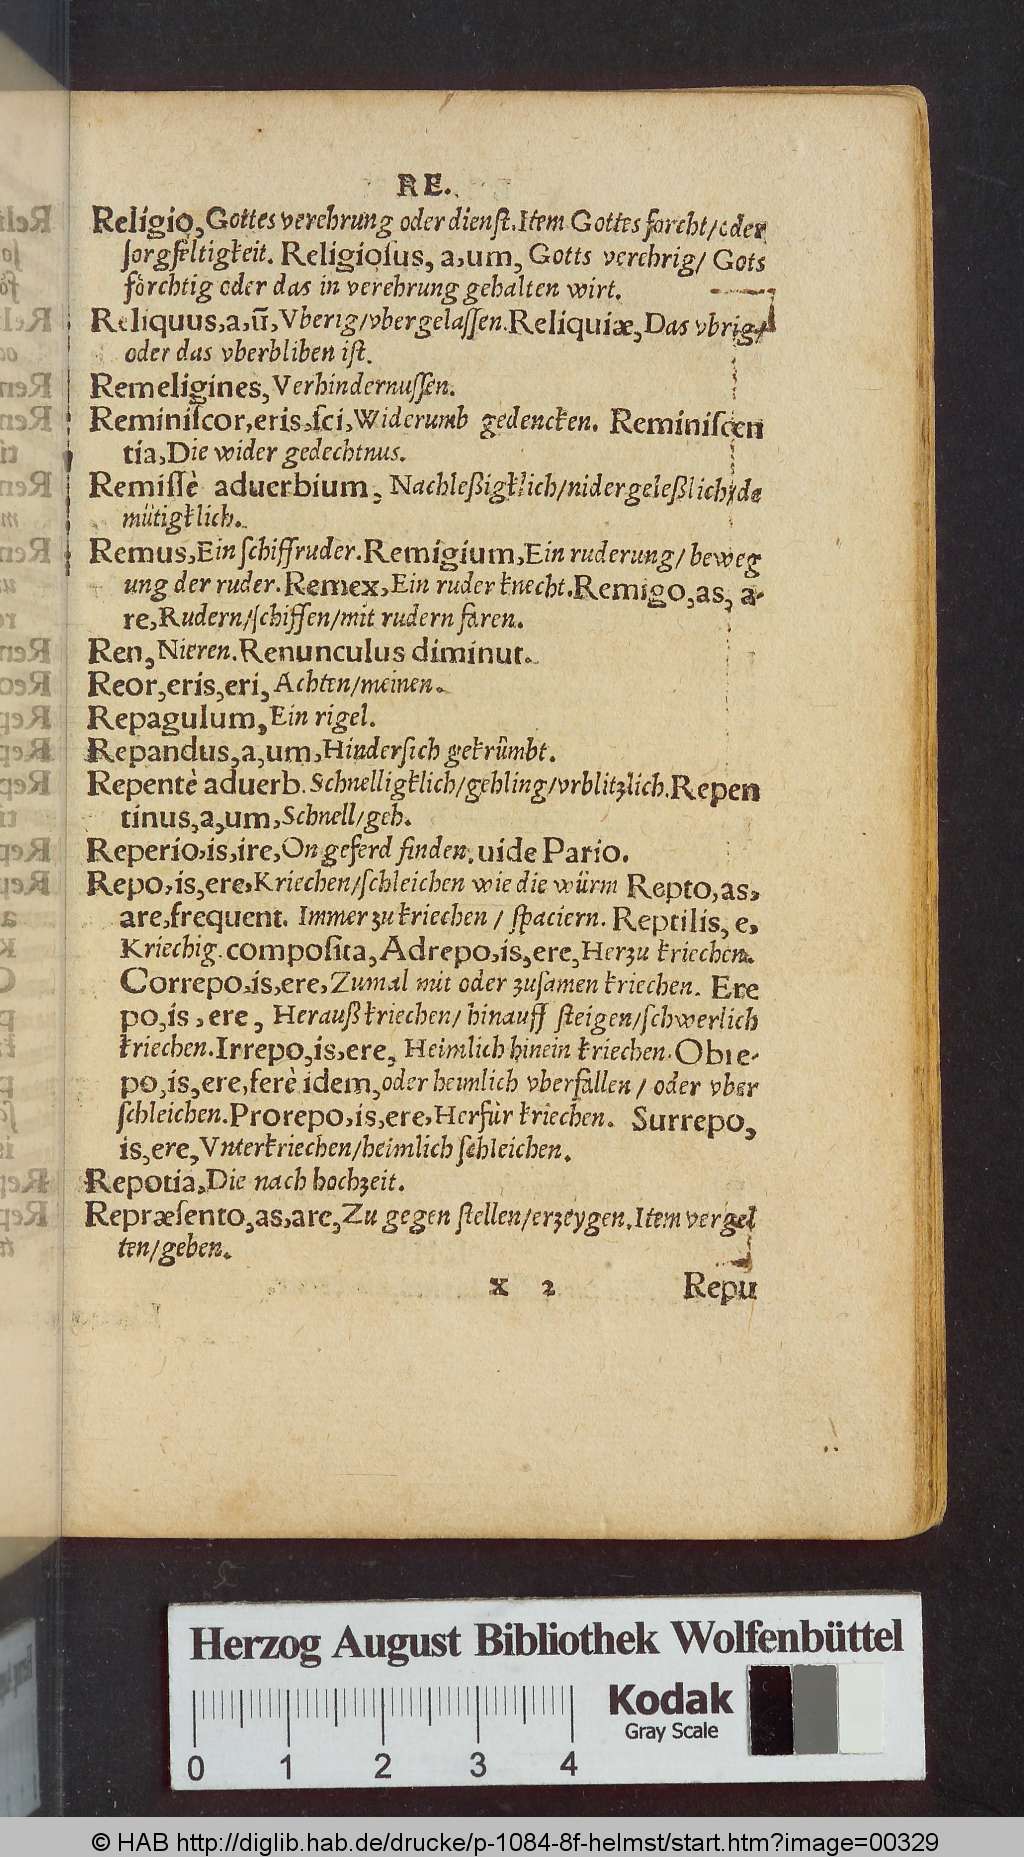 RE.
Religio, Gottes verehrung oder dienſt. Item Gottes forcht/oder
ſorgfeltigkeit. Religioſus, a, um, Gotts verehrig/ Gots
förchtig oder das in verehrung gehalten wirt.
Reliquus, a, ũ, Vberig/vbergelaſſen. Reliquiæ, Das vbrig/
oder das vberbliben iſt.
Remeligines, Verhindernuſſen.
Reminiſcor, eris, ſci, Widerumb gedencken. Reminiſcen
tia, Die wider gedechtnus.
Remiſſè aduerbium, Nachleßigklich/nidergeleßlich/de
mütigklich.
Remus, Ein ſchiffruder. Remigium, Ein ruderung/ beweg
ung der ruder. Remex, Ein ruder knecht. Remigo, as, a-
re, Rudern/ſchiffen/mit rudern faren.
Ren, Nieren. Renunculus diminut.
Reor, eris, eri, Achten/meinen.
Repagulum, Ein rigel.
Repandus, a, um, Hinderſich gekrûmbt.
Repentè aduerb. Schnelligklich/gehling/vrblitzlich. Repen
tinus, a, um, Schnell/geh.
Reperio, is, ire, On geferd finden. uide Pario.
Repo, is, ere, Kriechen/ſchleichen wie die würm Repto, as,
are, frequent. Immer zu kriechen / ſpaciern. Reptilis, e,
Kriechig. compoſita, Adrepo, is, ere, Herzu kriechen.
Correpo, is, ere, Zumal mit oder zuſamen kriechen. Ere
po, is, ere, Herauß kriechen/ hinauff ſteigen/ſchwerlich
kriechen. Irrepo, is, ere, Heimlich hinein kriechen. Obre-
po, is, ere, ferè idem, oder heimlich vberfallen / oder vber
ſchleichen. Prorepo, is, ere, Herfür kriechen. Surrepo,
is, ere, Vnterkriechen/heimlich ſchleichen.
Repotia, Die nach hochzeit.
Repræſento, as, are, Zu gegen ſtellen/erzeygen. Item vergel
ten/geben.
X 2 Repu
Herzog August Bibliothek Wolfenbüttel
Kodak
Gray Scale
0 1 2 3 4
© HAB http://diglib.hab.de/drucke/p-1084-8f-helmst/start.htm?image=00329